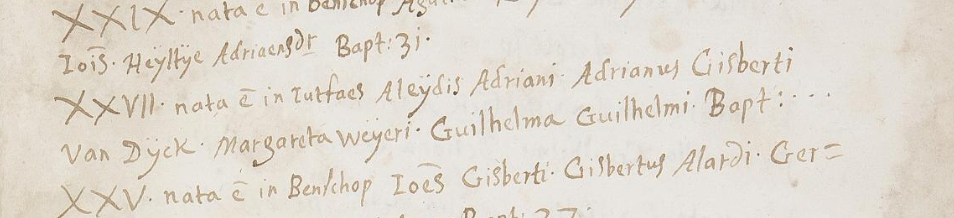 XXIX. nata ē in Benschop
Iōis. Heÿltÿe Adriaensdr Bapt: 31.
XXVII. nata ē in Iutfaes Aleÿdis Adriani. Adrianus Gisberti
Van Dÿck. Margareta Weÿeri. Guilhelma Guilhelmi. Bapt: . . .
XXV. nata ē in Benschop Ioēs Gisberti. Gisbertus Alardi. Ger=
Bapt: 27.